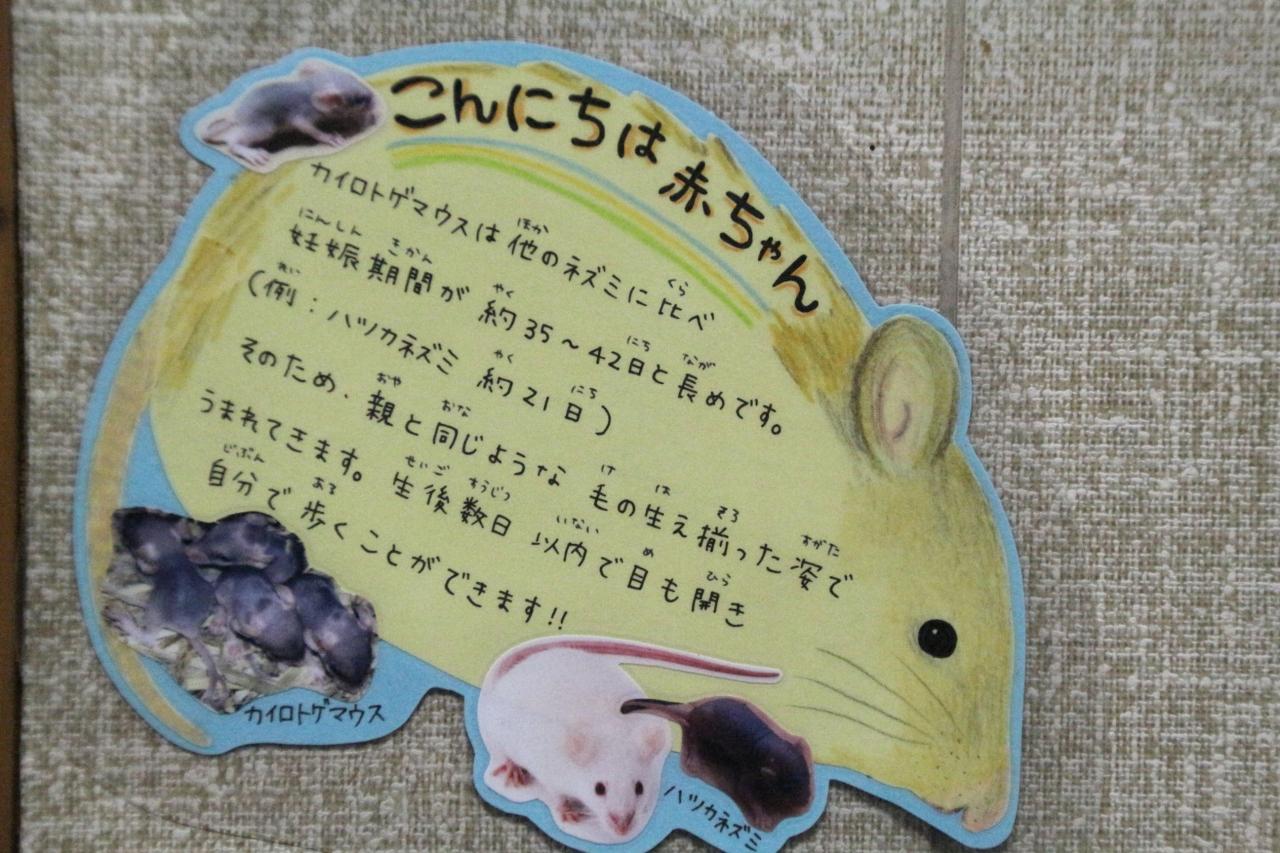 こんにちは赤ちゃん
カイロトゲマウスは他のネズミに比べ
妊娠期間が約35～42日と長めです。
(例：ハツカネズミ 約21日)
そのため、親と同じような 毛の生え揃った姿で
うまれてきます。生後数日 以内で目も開き
自分で歩くことができます!!
カイロトゲマウス
ハツカネズミ